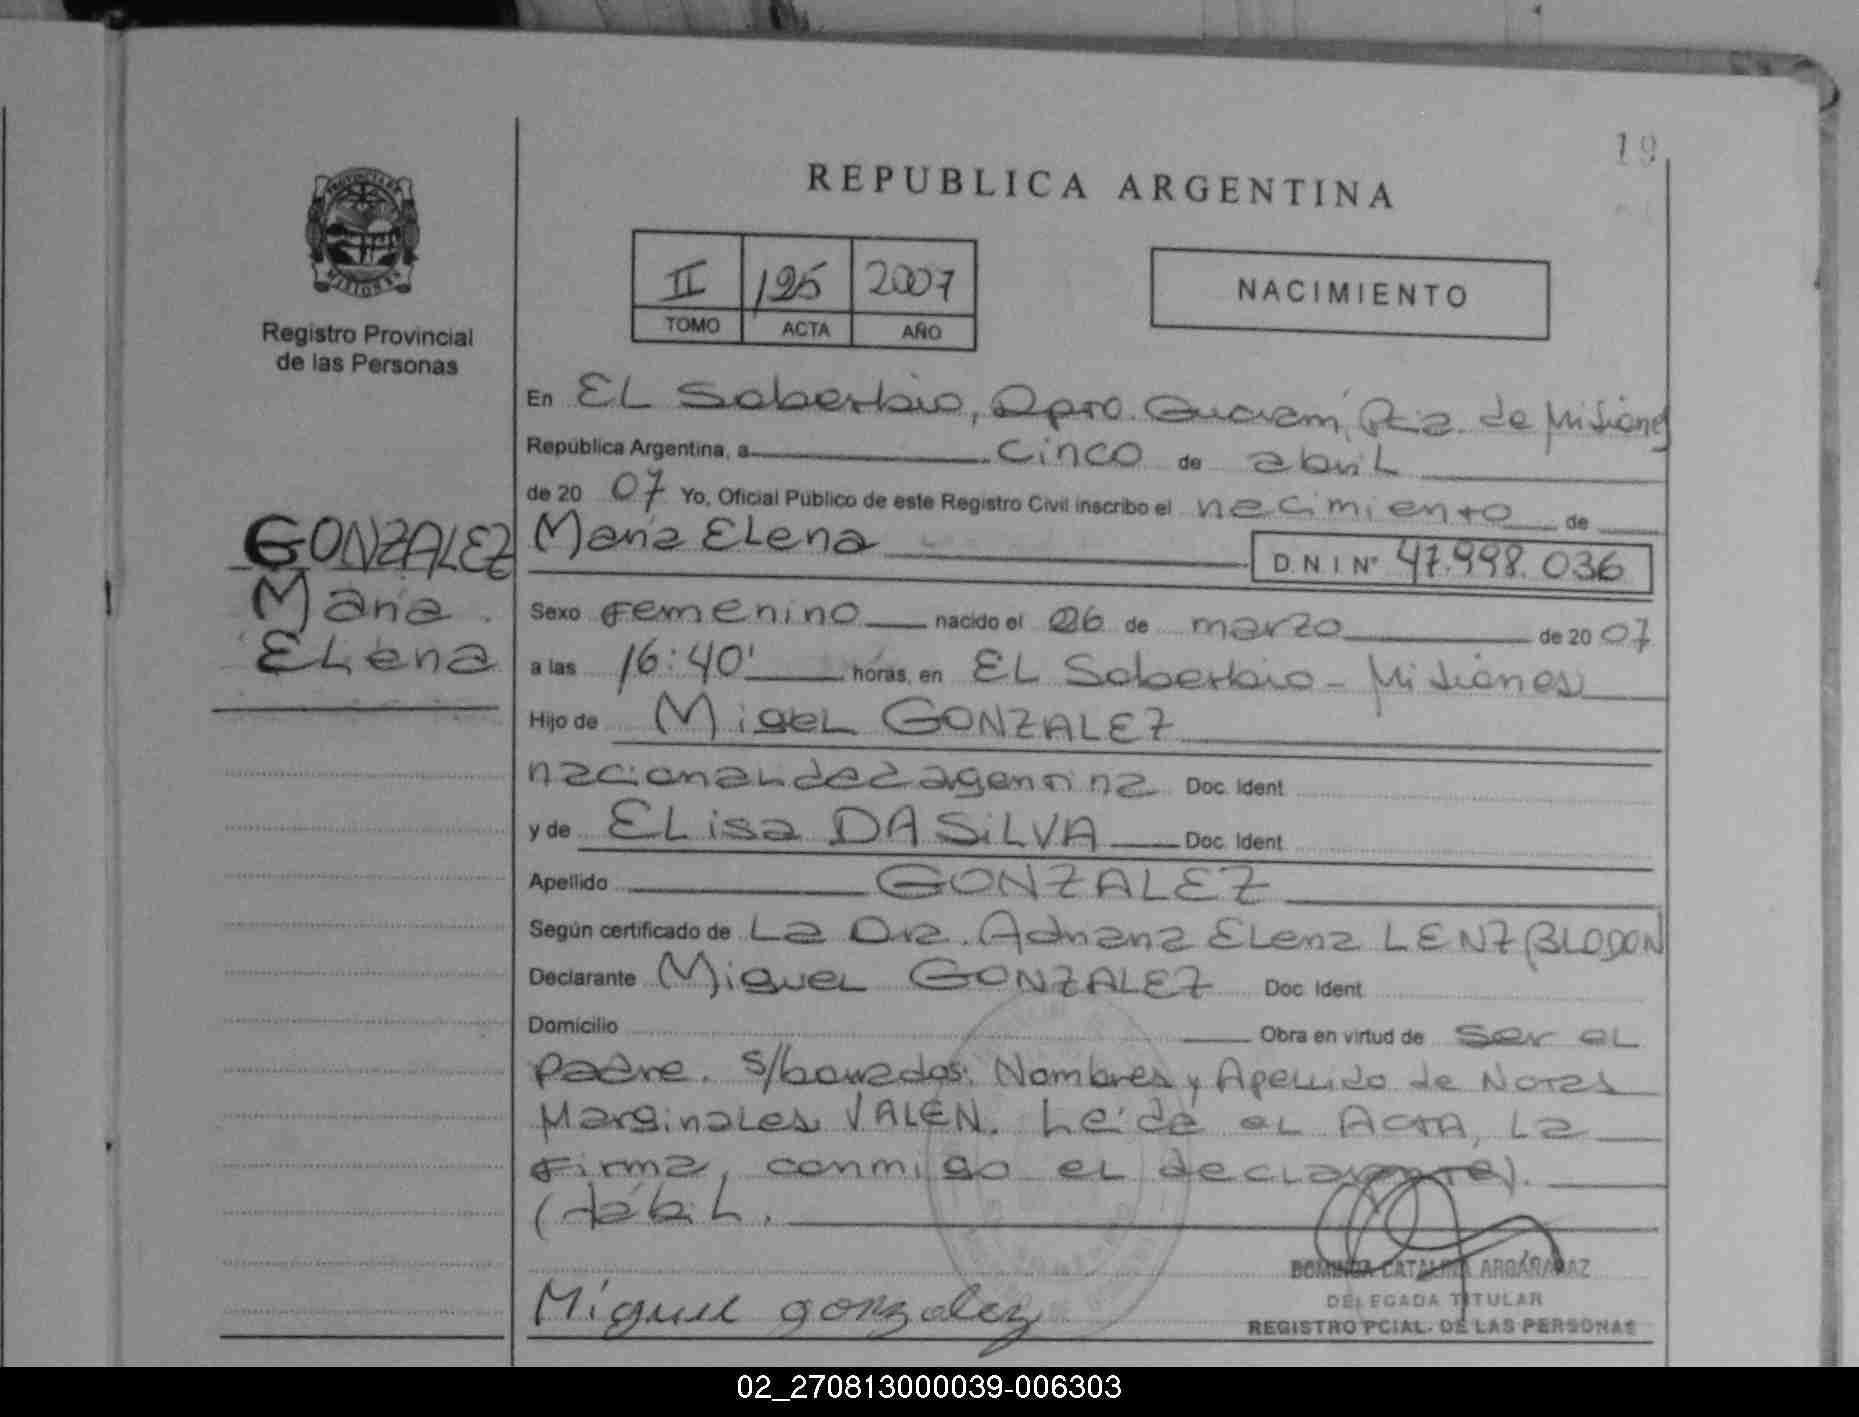 19
PROVINCIA DE
MISIONES
Registro Provincial
de las Personas
REPUBLICA ARGENTINA
II 195 2007
TOMO ACTA AÑO
NACIMIENTO
En EL Soberbio, Dpto. Guaraní, Pcia. de Misiones
República Argentina, a cinco de abril
de 2007 Yo, Oficial Público de este Registro Civil inscribo el nacimiento de
GONZALEZ
María
ELena
María ELena D.N.I Nº 47.998.036
Sexo Femenino nacido el 26 de marzo de 2007
a las 16:40' horas, en EL Soberbio - Misiones
Hijo de Migel GONZALEZ
nacionalidad agentina Doc. Ident
y de ELisa DA SiLVA Doc. Ident
Apellido GONZALEZ
Según certificado de La Dra. Adriana ELena LENZ BLODON
Declarante MigueL GONZALEZ Doc. Ident
Domicilio Obra en virtud de ser eL
Padre. S/borrados: Nombres y Apellido de Notas
Marginales VALEN. Leída eL ACTA, La
Firma, conmigo eL declarante).
(tábiL.
Miguel gonzalez
DOMINGA CATALINA ARGAÑARAZ
DELEGADA TITULAR
REGISTRO PCIAL. DE LAS PERSONAS
02_270813000039-006303